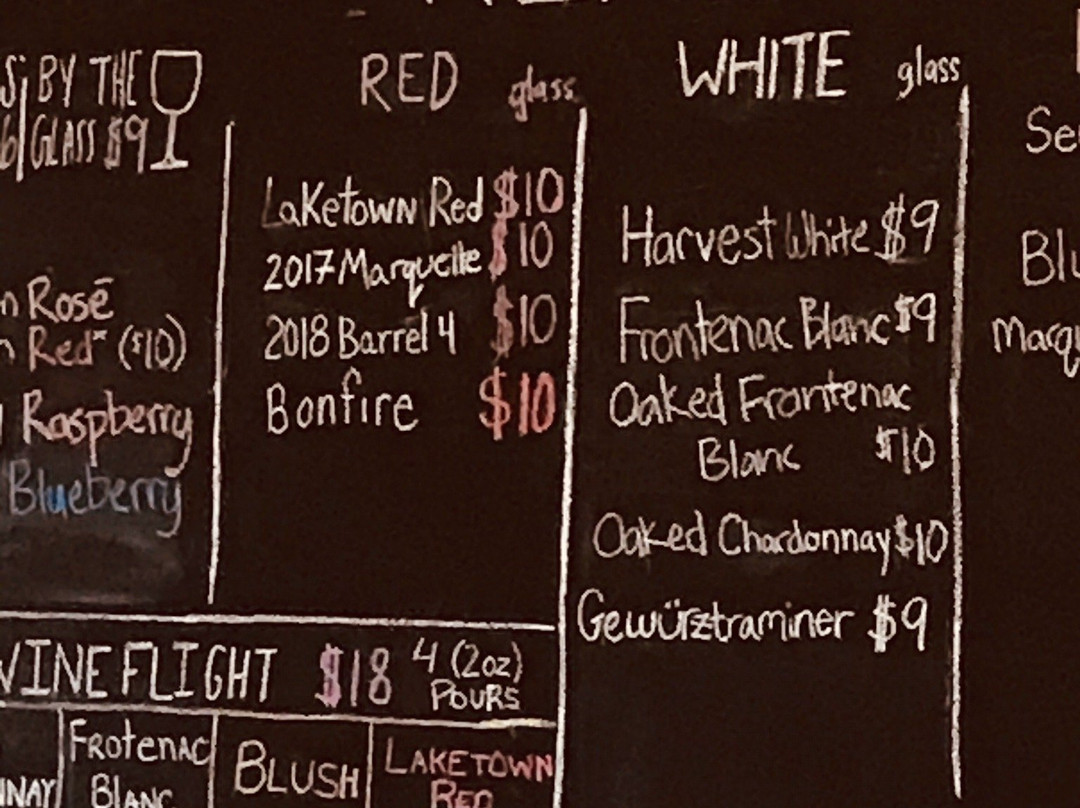 BY THE
GLASS $9
Rosé
Red* ($10)
Raspberry
Blueberry
RED glass
Laketown Red $10
2017 Marquette $10
2018 Barrel 4 $10
Bonfire $10
WHITE glass
Harvest White $9
Frontenac Blanc $9
Oaked Frontenac
Blanc $10
Oaked Chardonnay $10
Gewürztraminer $9
Se
Blu
Marqu
WINE FLIGHT $18 4 (2oz)
POURS
NNAY
FROTENAC
BLANC
BLUSH
LAKETOWN
RED